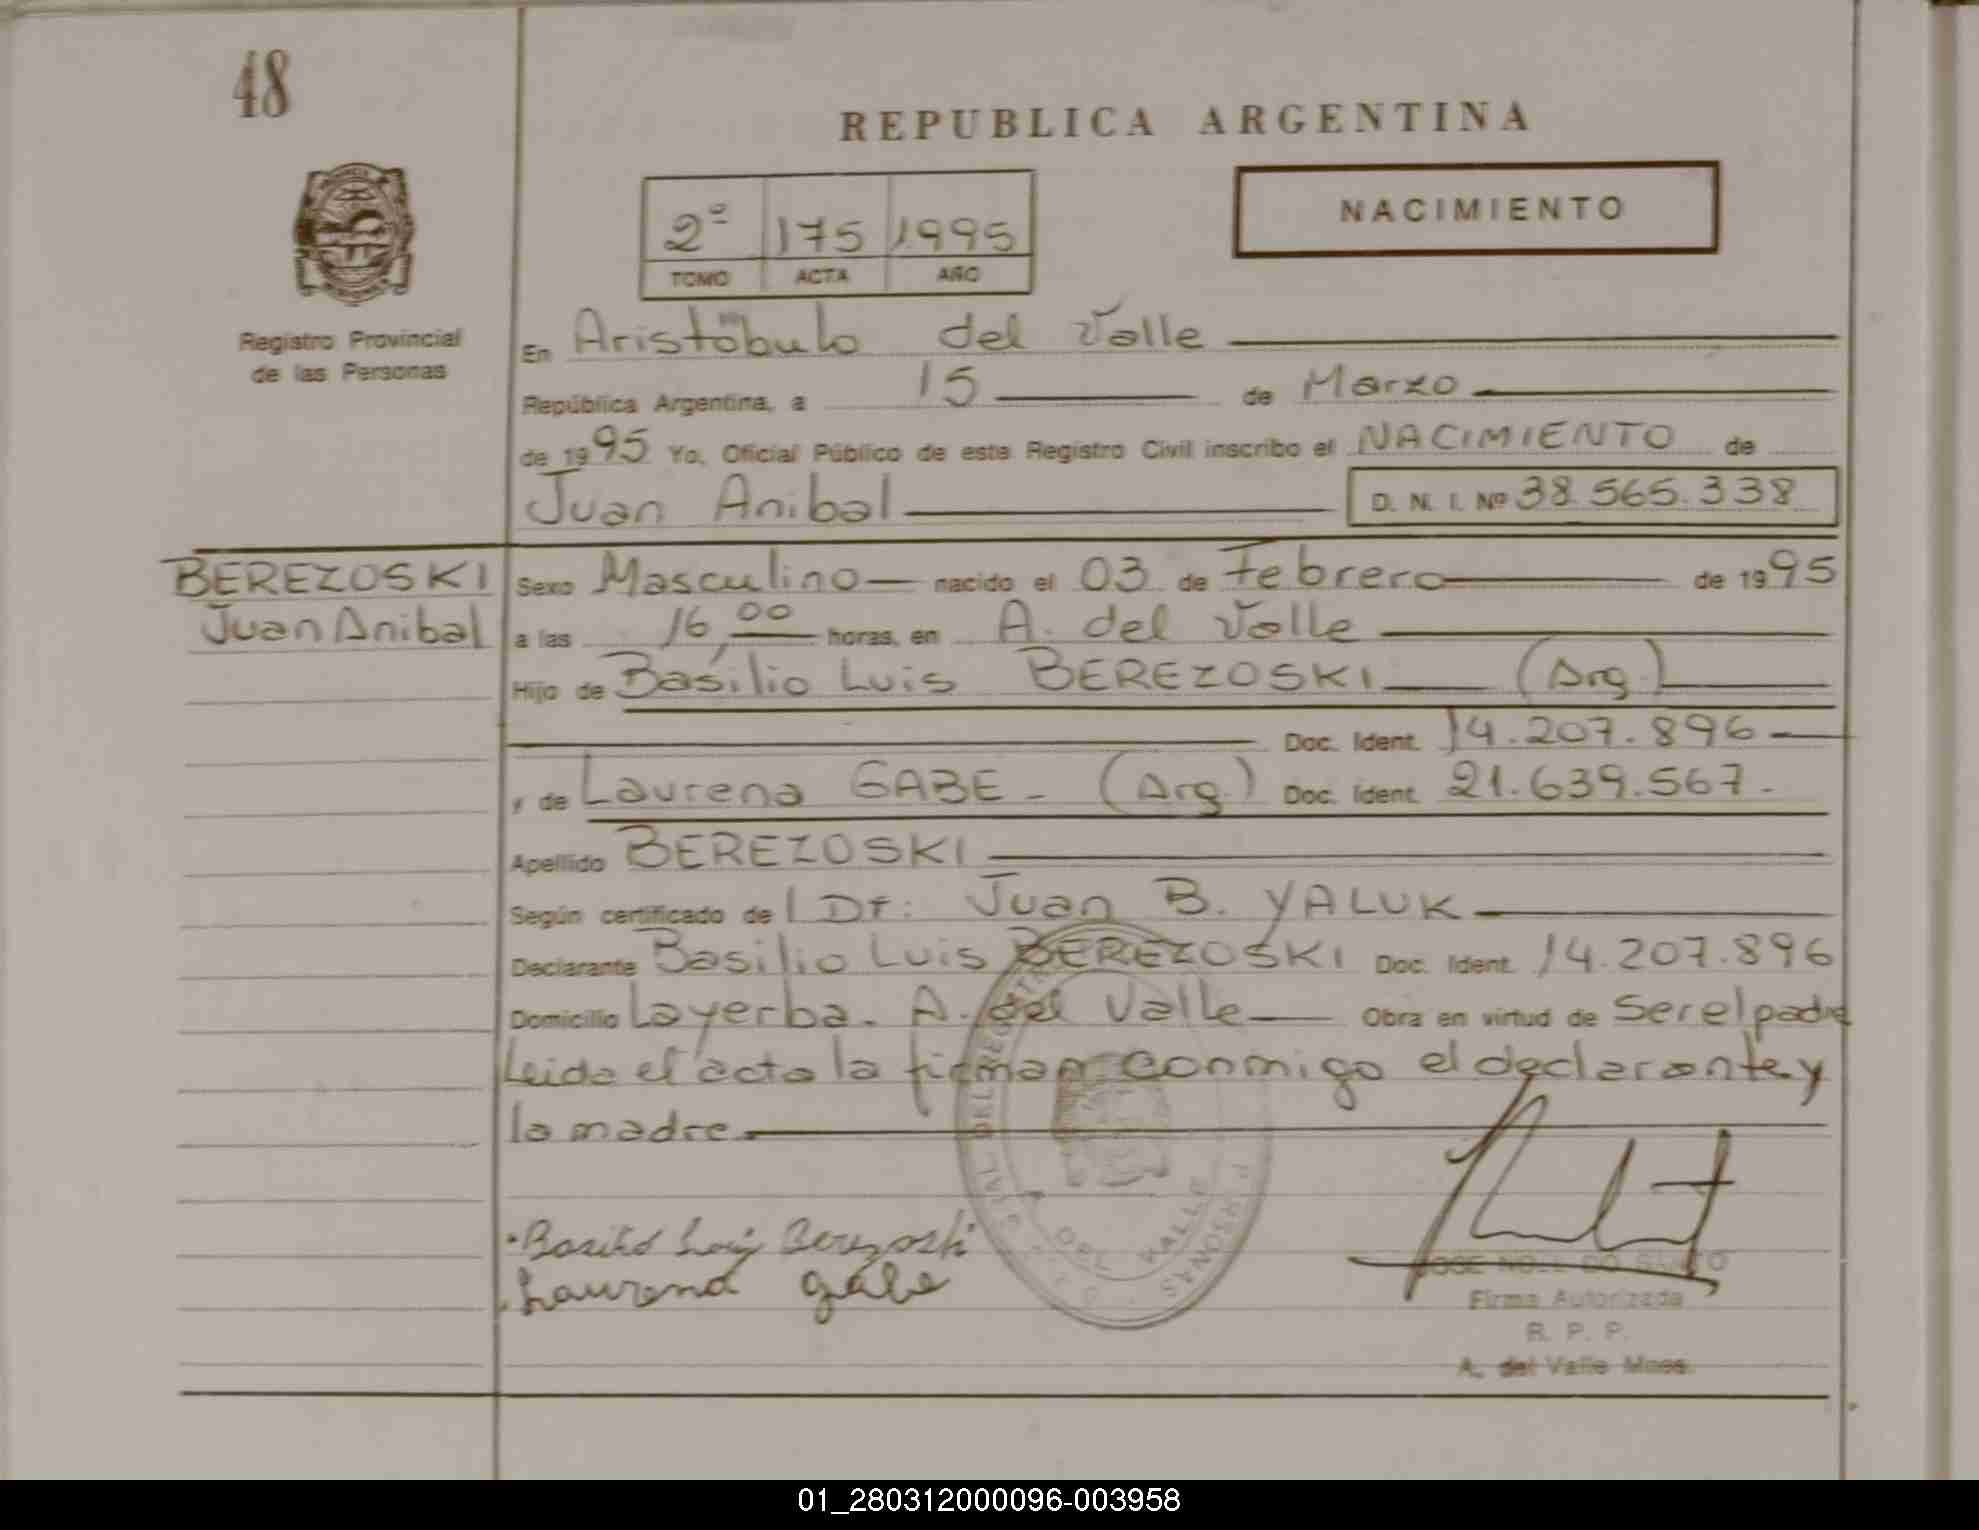 48
REPUBLICA ARGENTINA
NACIMIENTO
2º 175 1995
TOMO ACTA AÑO
Registro Provincial
de las Personas
En Aristóbulo del Valle
República Argentina, a 15 de Marzo
de 1995 Yo, Oficial Público de este Registro Civil inscribo el NACIMIENTO de
Juan Anibal D. N. I. Nº 38.565.338
BEREZOSKI
Juan Anibal
Sexo Masculino nacido el 03 de Febrero de 1995
a las 16,00 horas, en A. del Valle
Hijo de Basilio Luis BEREZOSKI (Arg.)
Doc. Ident. 14.207.896
y de Laurena GABE - (Arg.) Doc. Ident. 21.639.567.-
Apellido BEREZOSKI
Según certificado del Dr: Juan B. YALUK
Declarante Basilio Luis BEREZOSKI Doc. Ident. 14.207.896
Domicilio La yerba - A. del Valle Obra en virtud de Ser el padre
Leida el acta la firman conmigo el declarante y
la madre
DEL VALLE
Basilio Luis Berezoski
Laurena gabe
Firma Autorizada
R. P. P.
A. del Valle Mnes.
01_280312000096-003958